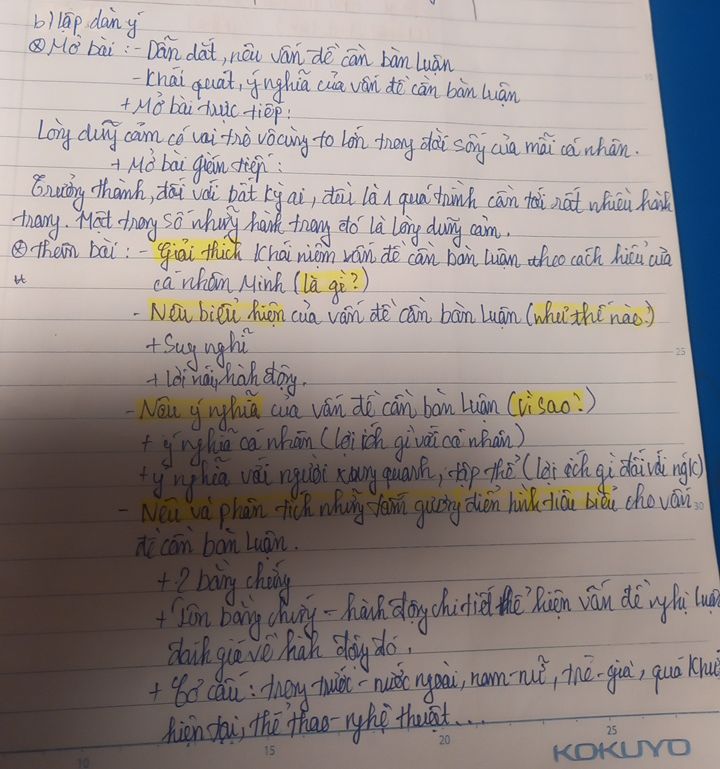 b) lập dàn ý
⊗ Mở bài : - Dẫn dắt, nêu vấn đề cần bàn luận
- Khái quát, ý nghĩa của vấn đề cần bàn luận
+ Mở bài trực tiếp:
Lòng dũng cảm có vai trò vô cùng to lớn trong đời sống của mỗi cá nhân.
+ Mở bài gián tiếp:
Trưởng thành, đối với bất kỳ ai, đều là 1 quá trình cần tới rất nhiều hành
trang. Một trong số những hành trang đó là lòng dũng cảm.
⊗ Thân bài : - Giải thích khái niệm vấn đề cần bàn luận theo cách hiểu của
cá nhân mình (là gì?)
- Nêu biểu hiện của vấn đề cần bàn luận (như thế nào?)
+ Suy nghĩ
+ Lời nói, hành động.
- Nêu ý nghĩa của vấn đề cần bàn luận (vì sao?)
+ ý nghĩa cá nhân (lợi ích gì với cá nhân)
+ ý nghĩa với người xung quanh, tập thể (lợi ích gì đối với ng k)
- Nêu và phân tích những tấm gương điển hình tiêu biểu cho vấn
đề cần bàn luận.
+ 2 bằng chứng
+ Tên bằng chứng - hành động chi tiết thể hiện vấn đề nghị luận
đánh giá về hành động đó.
+ Cơ cấu : trong nước - nước ngoài, nam - nữ, trẻ - già, quá khứ
hiện tại, thể thao - nghệ thuật...
25
30
10 15 20 25
KOKUYO